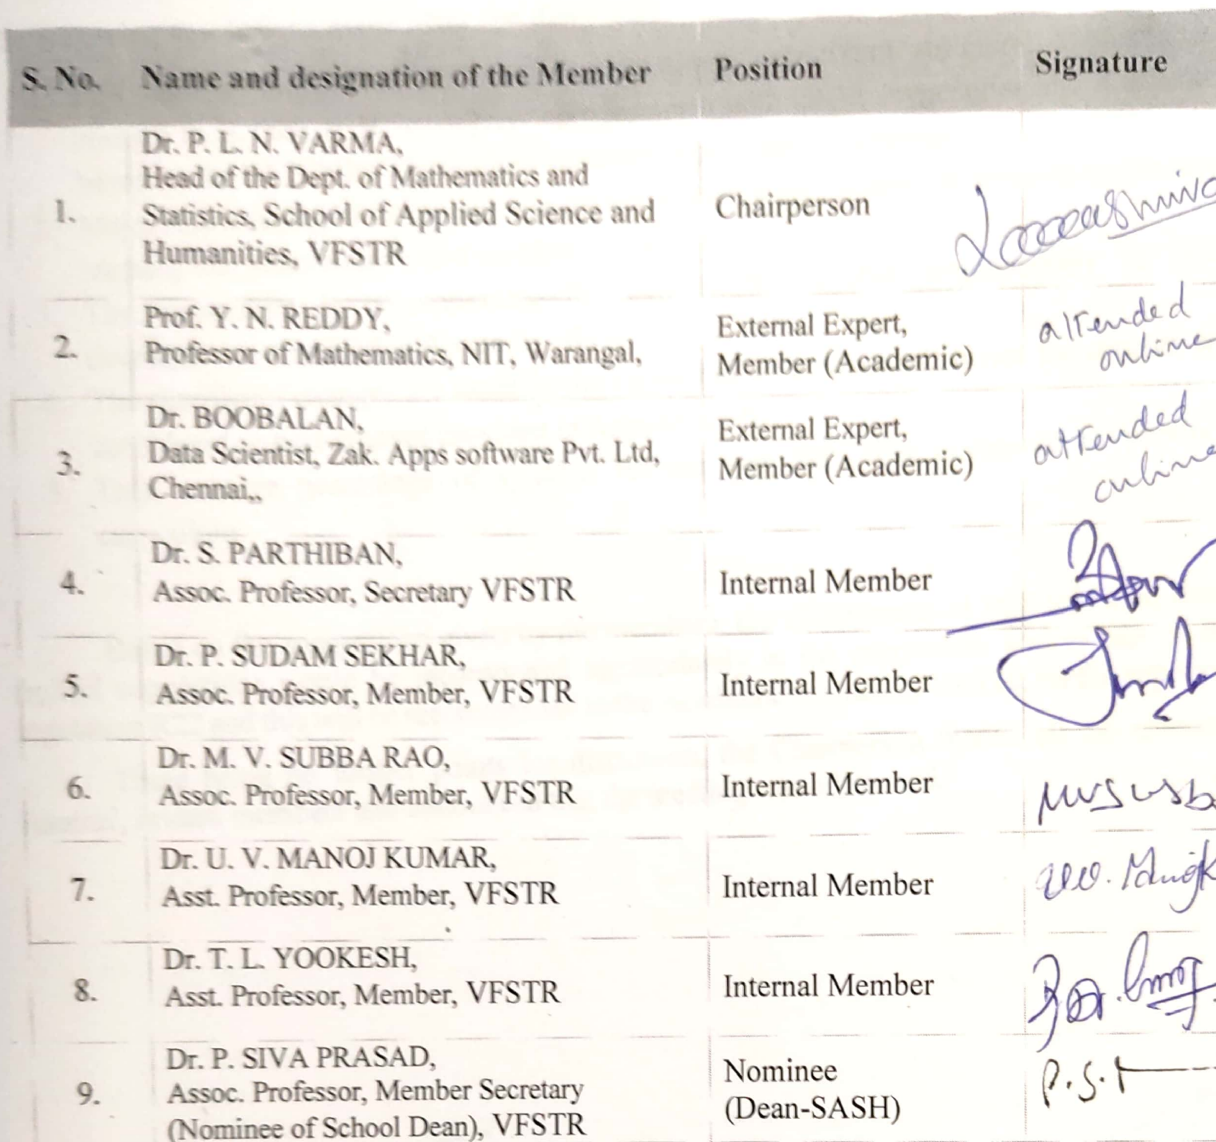 S. No. Name and designation of the Member Position Signature
1. Dr. P. L. N. VARMA,
Head of the Dept. of Mathematics and
Statistics, School of Applied Science and
Humanities, VFSTR
Chairperson
2. Prof. Y. N. REDDY,
Professor of Mathematics, NIT, Warangal,
External Expert,
Member (Academic)
attended
online
3. Dr. BOOBALAN,
Data Scientist, Zak. Apps software Pvt. Ltd,
Chennai,,
External Expert,
Member (Academic)
attended
online
4. Dr. S. PARTHIBAN,
Assoc. Professor, Secretary VFSTR
Internal Member
5. Dr. P. SUDAM SEKHAR,
Assoc. Professor, Member, VFSTR
Internal Member
6. Dr. M. V. SUBBA RAO,
Assoc. Professor, Member, VFSTR
Internal Member
7. Dr. U. V. MANOJ KUMAR,
Asst. Professor, Member, VFSTR
Internal Member
8. Dr. T. L. YOOKESH,
Asst. Professor, Member, VFSTR
Internal Member
9. Dr. P. SIVA PRASAD,
Assoc. Professor, Member Secretary
(Nominee of School Dean), VFSTR
Nominee
(Dean-SASH)